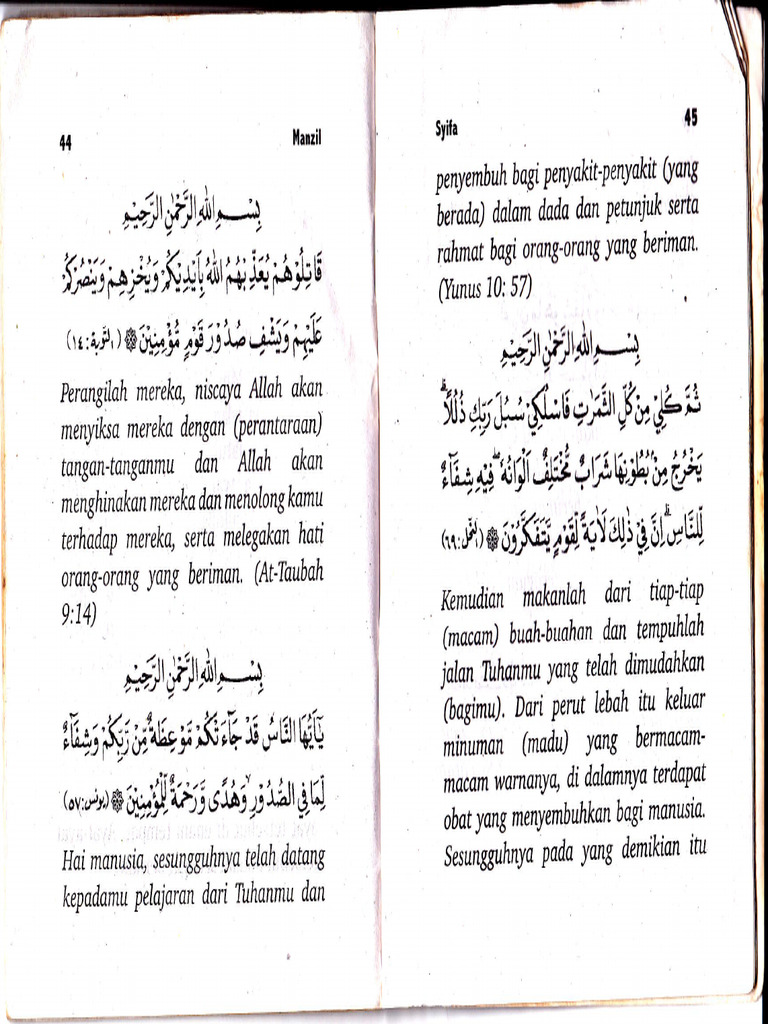 44 Manzil
بِسْمِ اللهِ الرَّحْمٰنِ الرَّحِيْمِ
قَاتِلُوْهُمْ يُعَذِّبْهُمُ اللهُ بِاَيْدِيْكُمْ وَيُخْزِهِمْ وَيَنْصُرْكُمْ
عَلَيْهِمْ وَيَشْفِ صُدُوْرَ قَوْمٍ مُّؤْمِنِيْنَ ۞ (التوبة: ١٤)
Perangilah mereka, niscaya Allah akan
menyiksa mereka dengan (perantaraan)
tangan-tanganmu dan Allah akan
menghinakan mereka dan menolong kamu
terhadap mereka, serta melegakan hati
orang-orang yang beriman. (At-Taubah
9:14)
بِسْمِ اللهِ الرَّحْمٰنِ الرَّحِيْمِ
يٰاَيُّهَا النَّاسُ قَدْ جَاءَتْكُمْ مَّوْعِظَةٌ مِّنْ رَّبِّكُمْ وَشِفَاۤءٌ
لِّمَا فِي الصُّدُوْرِ ۙ وَهُدًى وَّرَحْمَةٌ لِّلْمُؤْمِنِيْنَ ۞ (يونس: ٥٧)
Hai manusia, sesungguhnya telah datang
kepadamu pelajaran dari Tuhanmu dan
Syifa 45
penyembuh bagi penyakit-penyakit (yang
berada) dalam dada dan petunjuk serta
rahmat bagi orang-orang yang beriman.
(Yunus 10: 57)
بِسْمِ اللهِ الرَّحْمٰنِ الرَّحِيْمِ
ثُمَّ كُلِيْ مِنْ كُلِّ الثَّمَرٰتِ فَاسْلُكِيْ سُبُلَ رَبِّكِ ذُلُلًا ۗ
يَخْرُجُ مِنْۢ بُطُوْنِهَا شَرَابٌ مُّخْتَلِفٌ اَلْوَانُهٗ ۖ فِيْهِ شِفَاۤءٌ
لِّلنَّاسِ ۗ اِنَّ فِيْ ذٰلِكَ لَاٰيَةً لِّقَوْمٍ يَّتَفَكَّرُوْنَ ۞ (النحل: ٦٩)
Kemudian makanlah dari tiap-tiap
(macam) buah-buahan dan tempuhlah
jalan Tuhanmu yang telah dimudahkan
(bagimu). Dari perut lebah itu keluar
minuman (madu) yang bermacam-
macam warnanya, di dalamnya terdapat
obat yang menyembuhkan bagi manusia.
Sesungguhnya pada yang demikian itu